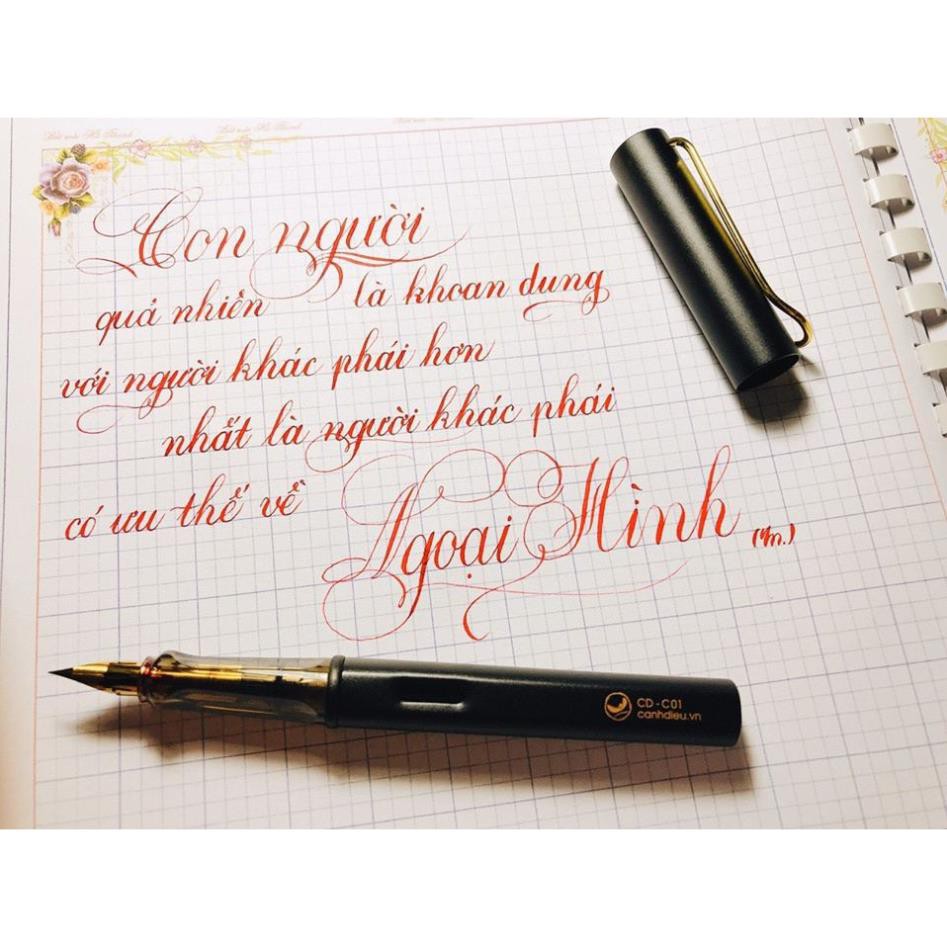 Con người
quả nhiên là khoan dung
với người khác phái hơn
nhất là người khác phái
có ưu thế về
Ngoại Hình (Ym.)
CD - C01
canhdieu.vn